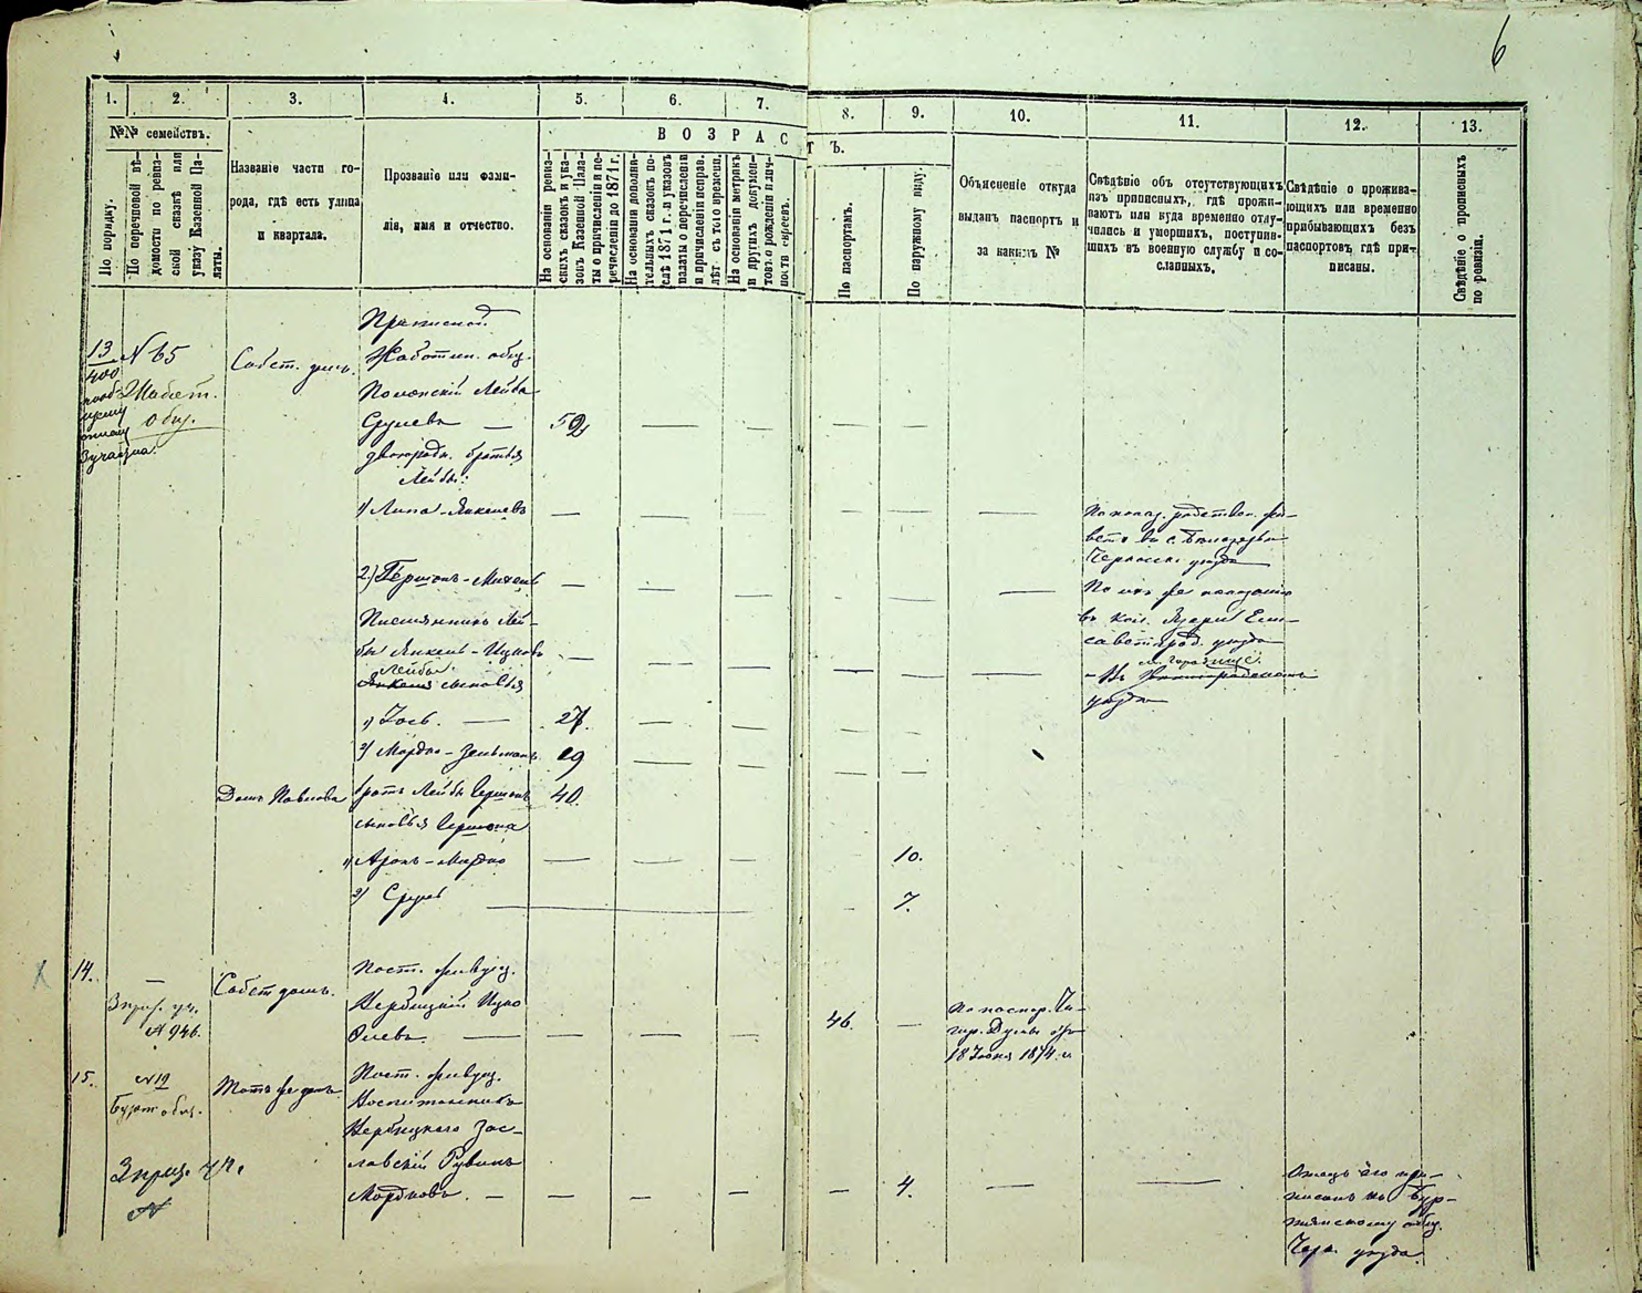 6
1.
2.
3.
4.
5.
6.
7.
8.
9.
10.
11.
12.
13.
№№ семействъ.
По порядку.
По перечневой вѣ-
домости по ревиз-
ской сказкѣ или
указу Казенной Па-
латы.
Названіе части го-
рода, гдѣ есть улица
и квартала.
Прозваніе или фами-
лія, имя и отчество.
ВОЗРАСТЪ.
На основаніи ревиз-
скихъ сказокъ и ука-
зовъ Казенной Пала-
ты о причисленіи и пе-
речисленіи до 1871 г.
На основаніи дополни-
тельныхъ сказокъ по-
слѣ 1871 г. и указовъ
палаты о перечисленіи
и причисленіи исправ.
лѣт. съ того времени.
На основаніи метрикъ
и другихъ докумен-
товъ о рожденіи и лич-
ности евреевъ.
По паспортамъ.
По наружному виду.
Объясненіе откуда
выданъ паспортъ и
за какимъ №
Свѣдѣніе объ отсутствующихъ
изъ приписныхъ, гдѣ прожи-
ваютъ или куда временно отлу-
чились и умершихъ, поступив-
шихъ въ военную службу и со-
сланныхъ.
Свѣдѣніе о прожива-
ющихъ или временно
прибывающихъ безъ
паспортовъ, гдѣ при-
писаны.
Свѣдѣніе о прописныхъ
по ревизіи.
13
400
N 65
общ.
Собст. домъ.
Приписной
Жаботин. общ.
Полонскій Лейба
Срулевъ — 52
двоюродн. братья
Лейбы:
1) Липа-Янкелевъ
По показ. родствен. жи-
ветъ въ с.
Черкасск. уѣзда
2) Гершонъ-Михель
По ихъ же показанію
въ кол. Елис-
саветград. уѣзда
Племянникъ Лей-
бы Янкель-Ицковъ
м. Городище.
- Въ
уѣзда
Лейбы
Янкеля сыновья
1) Іось. — 27.
2) Мордко-Зельманъ 19
Домъ Павлова
братъ Лейбы Гершонъ 40.
сыновья Гершона
1) Аронъ-Мордко 10.
2) Сруль 7.
14.
3 приз. уч.
N 946.
Собст домъ.
Пост. живущ.
Вербицкій Ицко
46.
По паспор. Чи-
гир. Думы отъ
18 Іюня 1874 г.
15.
N 19
общ.
3 приз. уч.
N
Тотъ же домъ
Пост. живущ.
Воспитанникъ
Вербицкаго Зас-
лавскій Рувинъ
Мордковъ. — 4.
Отецъ его при-
писанъ къ Бур-
тянскому общ.
уѣзда